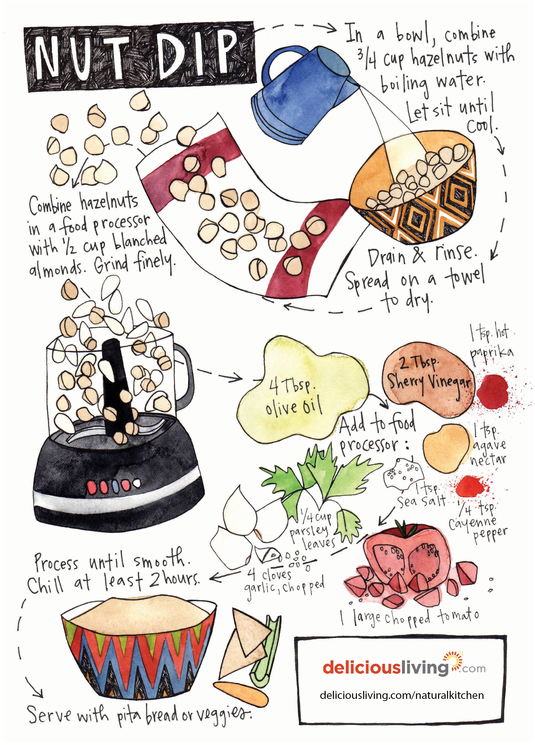 NUT DIP
In a bowl, combine
3/4 cup hazelnuts with
boiling water.
Let sit until
cool.
Drain & rinse.
Spread on a towel
to dry.
Combine hazelnuts
in a food processor
with 1/2 cup blanched
almonds. Grind finely.
4 Tbsp.
olive oil
2 Tbsp.
Sherry Vinegar
1 tsp. hot
paprika
Add to food
processor:
1 tsp.
agave
nectar
1 tsp
sea salt
1/4 tsp.
cayenne
pepper
1/4 cup
parsley
leaves
4 cloves
garlic, chopped
1 large chopped tomato
Process until smooth.
Chill at least 2 hours.
Serve with pita bread or veggies.
deliciousliving.com
deliciousliving.com/naturalkitchen